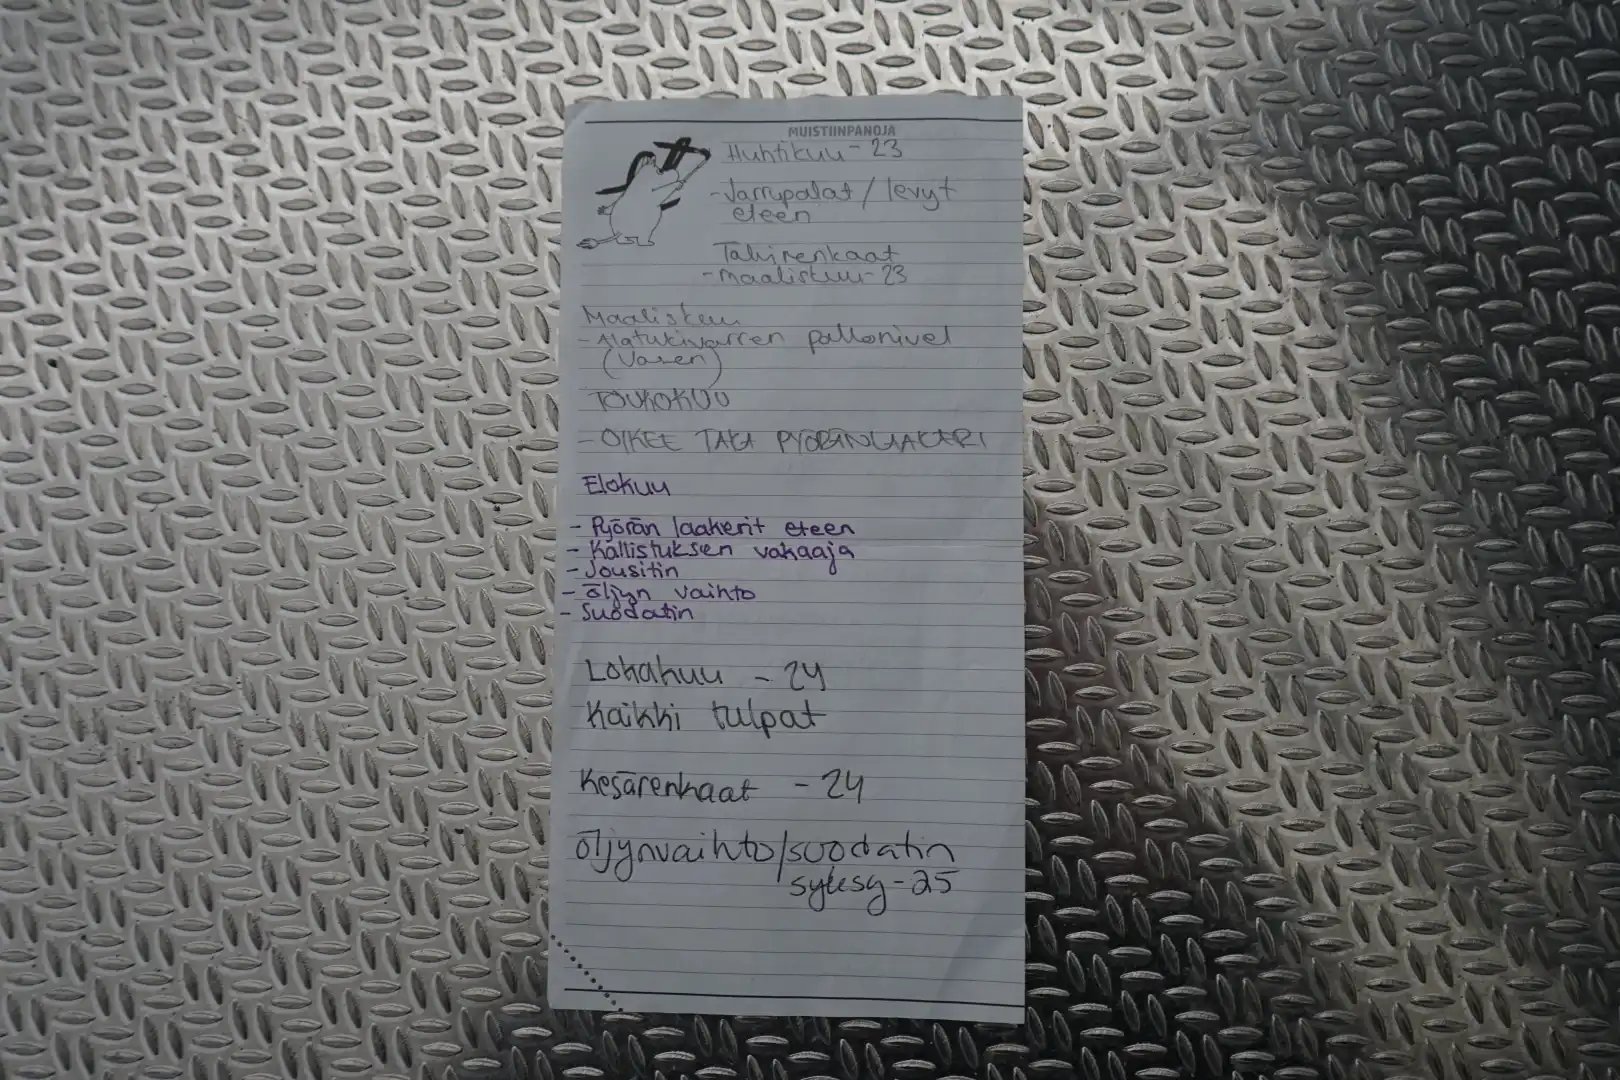 MUISTIINPANOJA
Huhtikuu - 23
- Jarrupalat / levyt
eteen
Talvirenkaat
- Maaliskuu - 23
Maaliskuu
- Alatukivarren pallonivel
(Vasen)
TOUKOKUU
- OIKEE TAKA PYÖRÄNLAAKERI
Elokuu
- Pyörän laakerit eteen
- Kallistuksen vakaaja
- Jousitin
- öljyn vaihto
- Suodatin
Lokakuu - 24
Kaikki tulpat
Kesärenkaat - 24
öljynvaihto/suodatin
syksy - 25